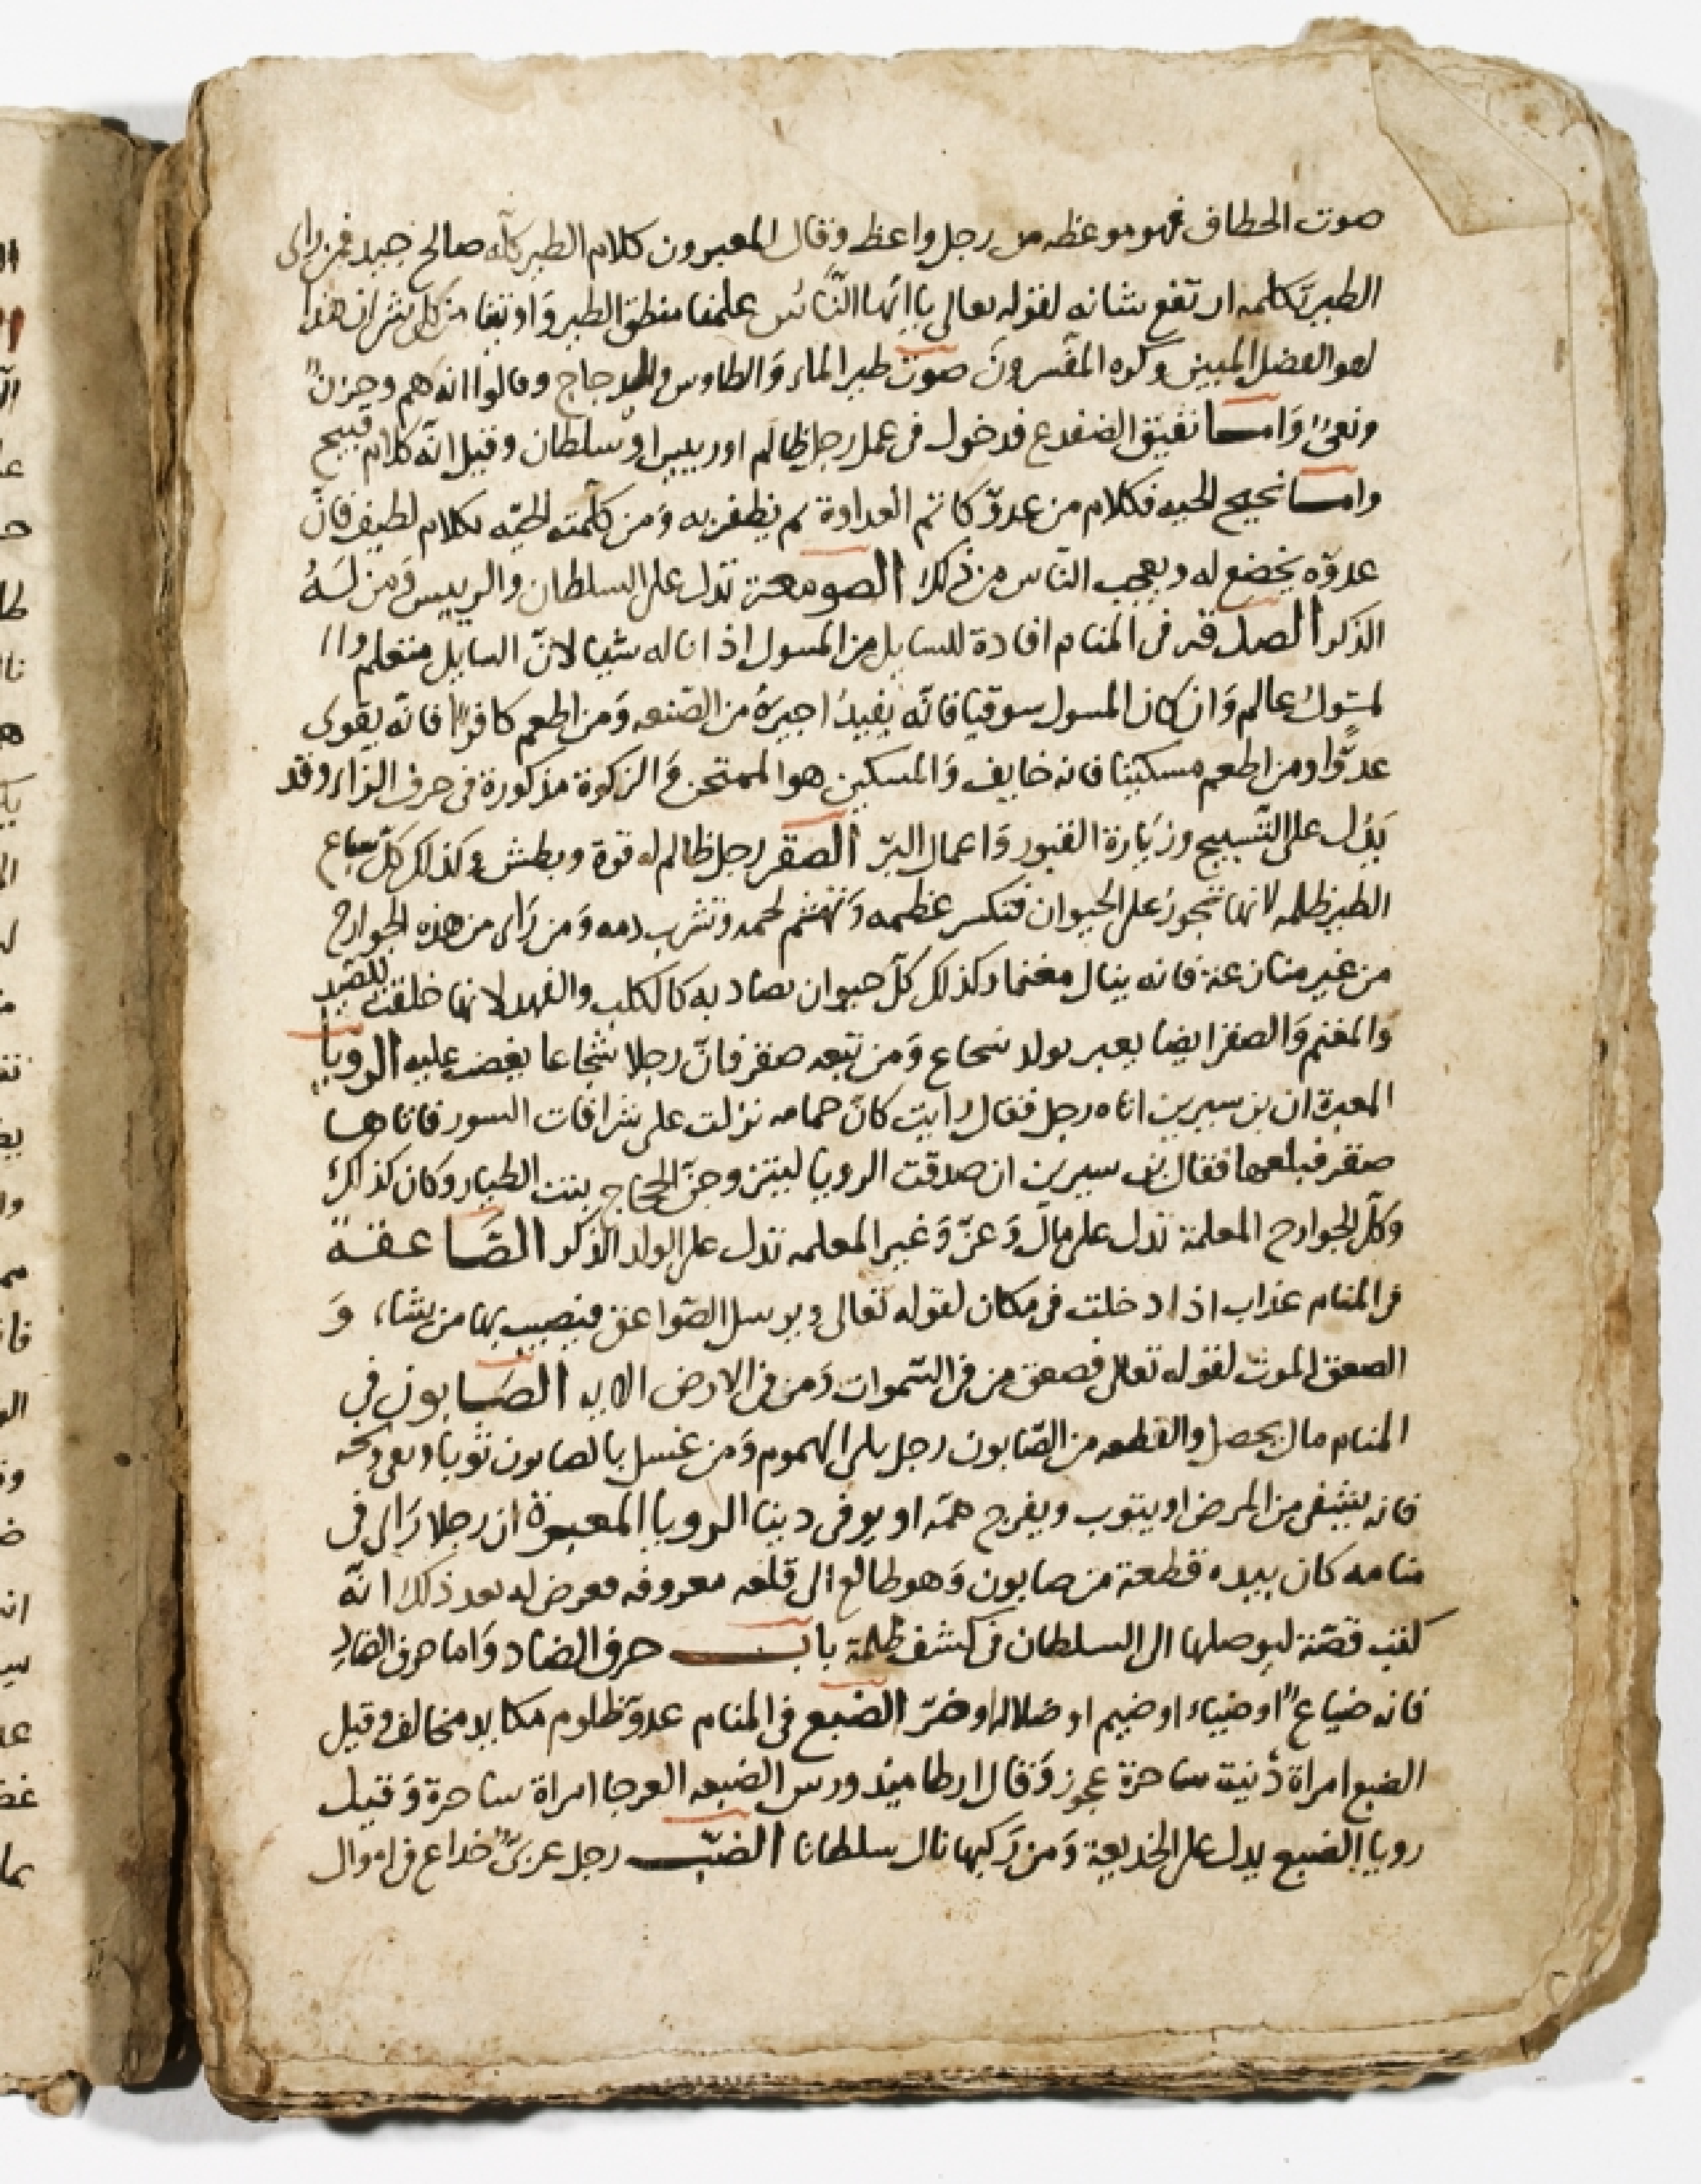 صوت الخطاف فهو موعظه من رجل واعظ وقال المعبرون كلام الطير كلّه صالح جيد فمن راى
الطير تكلمه ارتفع شانه لقوله تعالى ياايّها النّاس علمنا منطق الطير وَاوتينا من كل شى ان هذا
لهو الفضل المبين وكره المفسرونَ صوت طير الماء وَالطاوس والدجاج وقالوا انه هم وحزن
ونعىٌ وَامـــا نقيق الضفدع فدخول فى عمل رجل ظالم او رييس او سلطان وقيل انّه كلام قبيح
وامـــا نحيح الحيه فكلام من عدوّ كاتم العداوة ثم يظفر به وَمن كلّمته الحيّه بكلام لطيف فانّ
عدوّه يخضع له ويعجب النّاس من ذلك الصومعة تدل على السلطان والرييس وَمن لَسَهُ
الذكر الصدقه فى المنام افادة للسايل من المسول اذ اناله شيا لانّ السايل متعلم وا
لمسول عالم وَان كان المسول سوقيا فانّه يفيد اجيرهُ من الصّنعه وَمن اطعم كافرا فانّه يقوى
عدوّا ومن اطعم مسكينا فانه خايف وَالمسكين هو الممتحن وَالزكوة مذكورة فى حرف الزاء وقد
يَدُل على التّسبيح وزيَارة القبور وَاعمال البرّ الصقر رجل ظالم له قوة وبطش وكذلك كلّ سباع
الطير ظلمه لانها تجورُ على الحيوان فتكسر عظمه وَتهشم لحمه وتشرب دمه وَمن رَاى من هذه الجوارح
من غير منازعة فانه ينال مغنما وكذلك كلّ حيوان يصاد به كالكلب والفهد لانها خلقت للصّيد
والمغنم وَالصقر ايضا يعبر بولد شجاع وَمن تبعه صقر فانّ رجلا شجاعا يغضب عليه الرويا
المعبرة ان بن سيرين اتاه رجل فقال رايت كانّ حمامه نزلت على شرافات السور فاتاها
صقر فبلعها فقال بن سيرين ان صدقت الرويا ليتزوجنّ الحجاج بنت الطيار وكان كذلك
وَكلّ الجوارح المعلمة تدل على مال وَعزّ وَغير المعلمه تدل على الولد الذكر الصَّاعقة
فى المنام عذاب اذا دخلت فى مكان لقوله تعالى ويرسل الصّواعق فيصيب بها من يشاء وَ
الصعق الموت لقوله تعالى فصعق من فى السّموات وَمن فى الارض الايه الصَابون فى
المنام مال يحصل والقطعه من الصّابون رجل يلى الهموم وَمن غسل بالصابون ثوبا وبقى وسخه
فانه يشفى من المرض او يتوب ويفرج همّه او يوفى دينا الرويا المعبرة ان رجلا رَاى فى
منامه كان بيده قطعة من صابون وَهو طالع الى قلعه معروفه فعرض له بعد ذلك انّه
كتب قصّة ليوصلها الى السلطان فى كشف ظلمة بابـــ حرف الضاد وَاما حرف الضاد
فانه ضياع او ضياء او ضيم او ضلاله او ضرّ الضبع فى المنام عدوّ ظلوم مكايد مخالف وقيل
الضبع امراة دَنية ساحرة عجوز وَقال ارطاميدورس الضبعه العرجا امراة ساحرة وَقيل
رويا الضبع يدل على الخديعة وَمن رَكبها نال سلطانا الضبّـــ رجل عربىّ خداع فى اموال